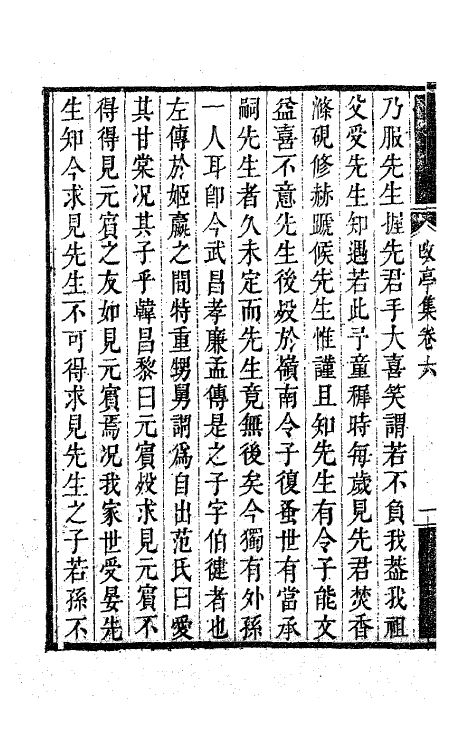 乃服先生握先君手大喜笑謂若不負我葢我祖
父受先生知遇若此予童穉時每歲見先君焚香
滌硯修赫蹏候先生惟謹且知先生有令子能文
益喜不意先生後歿於嶺南令子復蚤世有當承
嗣先生者久未定而先生竟無後矣今獨有外孫
一人耳卽今武昌孝廉孟傳是之子字伯徤者也
左傳於姬嬴之間特重甥舅謂爲自出范氏曰愛
其甘棠况其子乎韓昌黎曰元賓歿求見元賓不
得得見元賓之友如見元賓焉况我家世受晏先
生知今求見先生不可得求見先生之子若孫不
亭集卷六
一